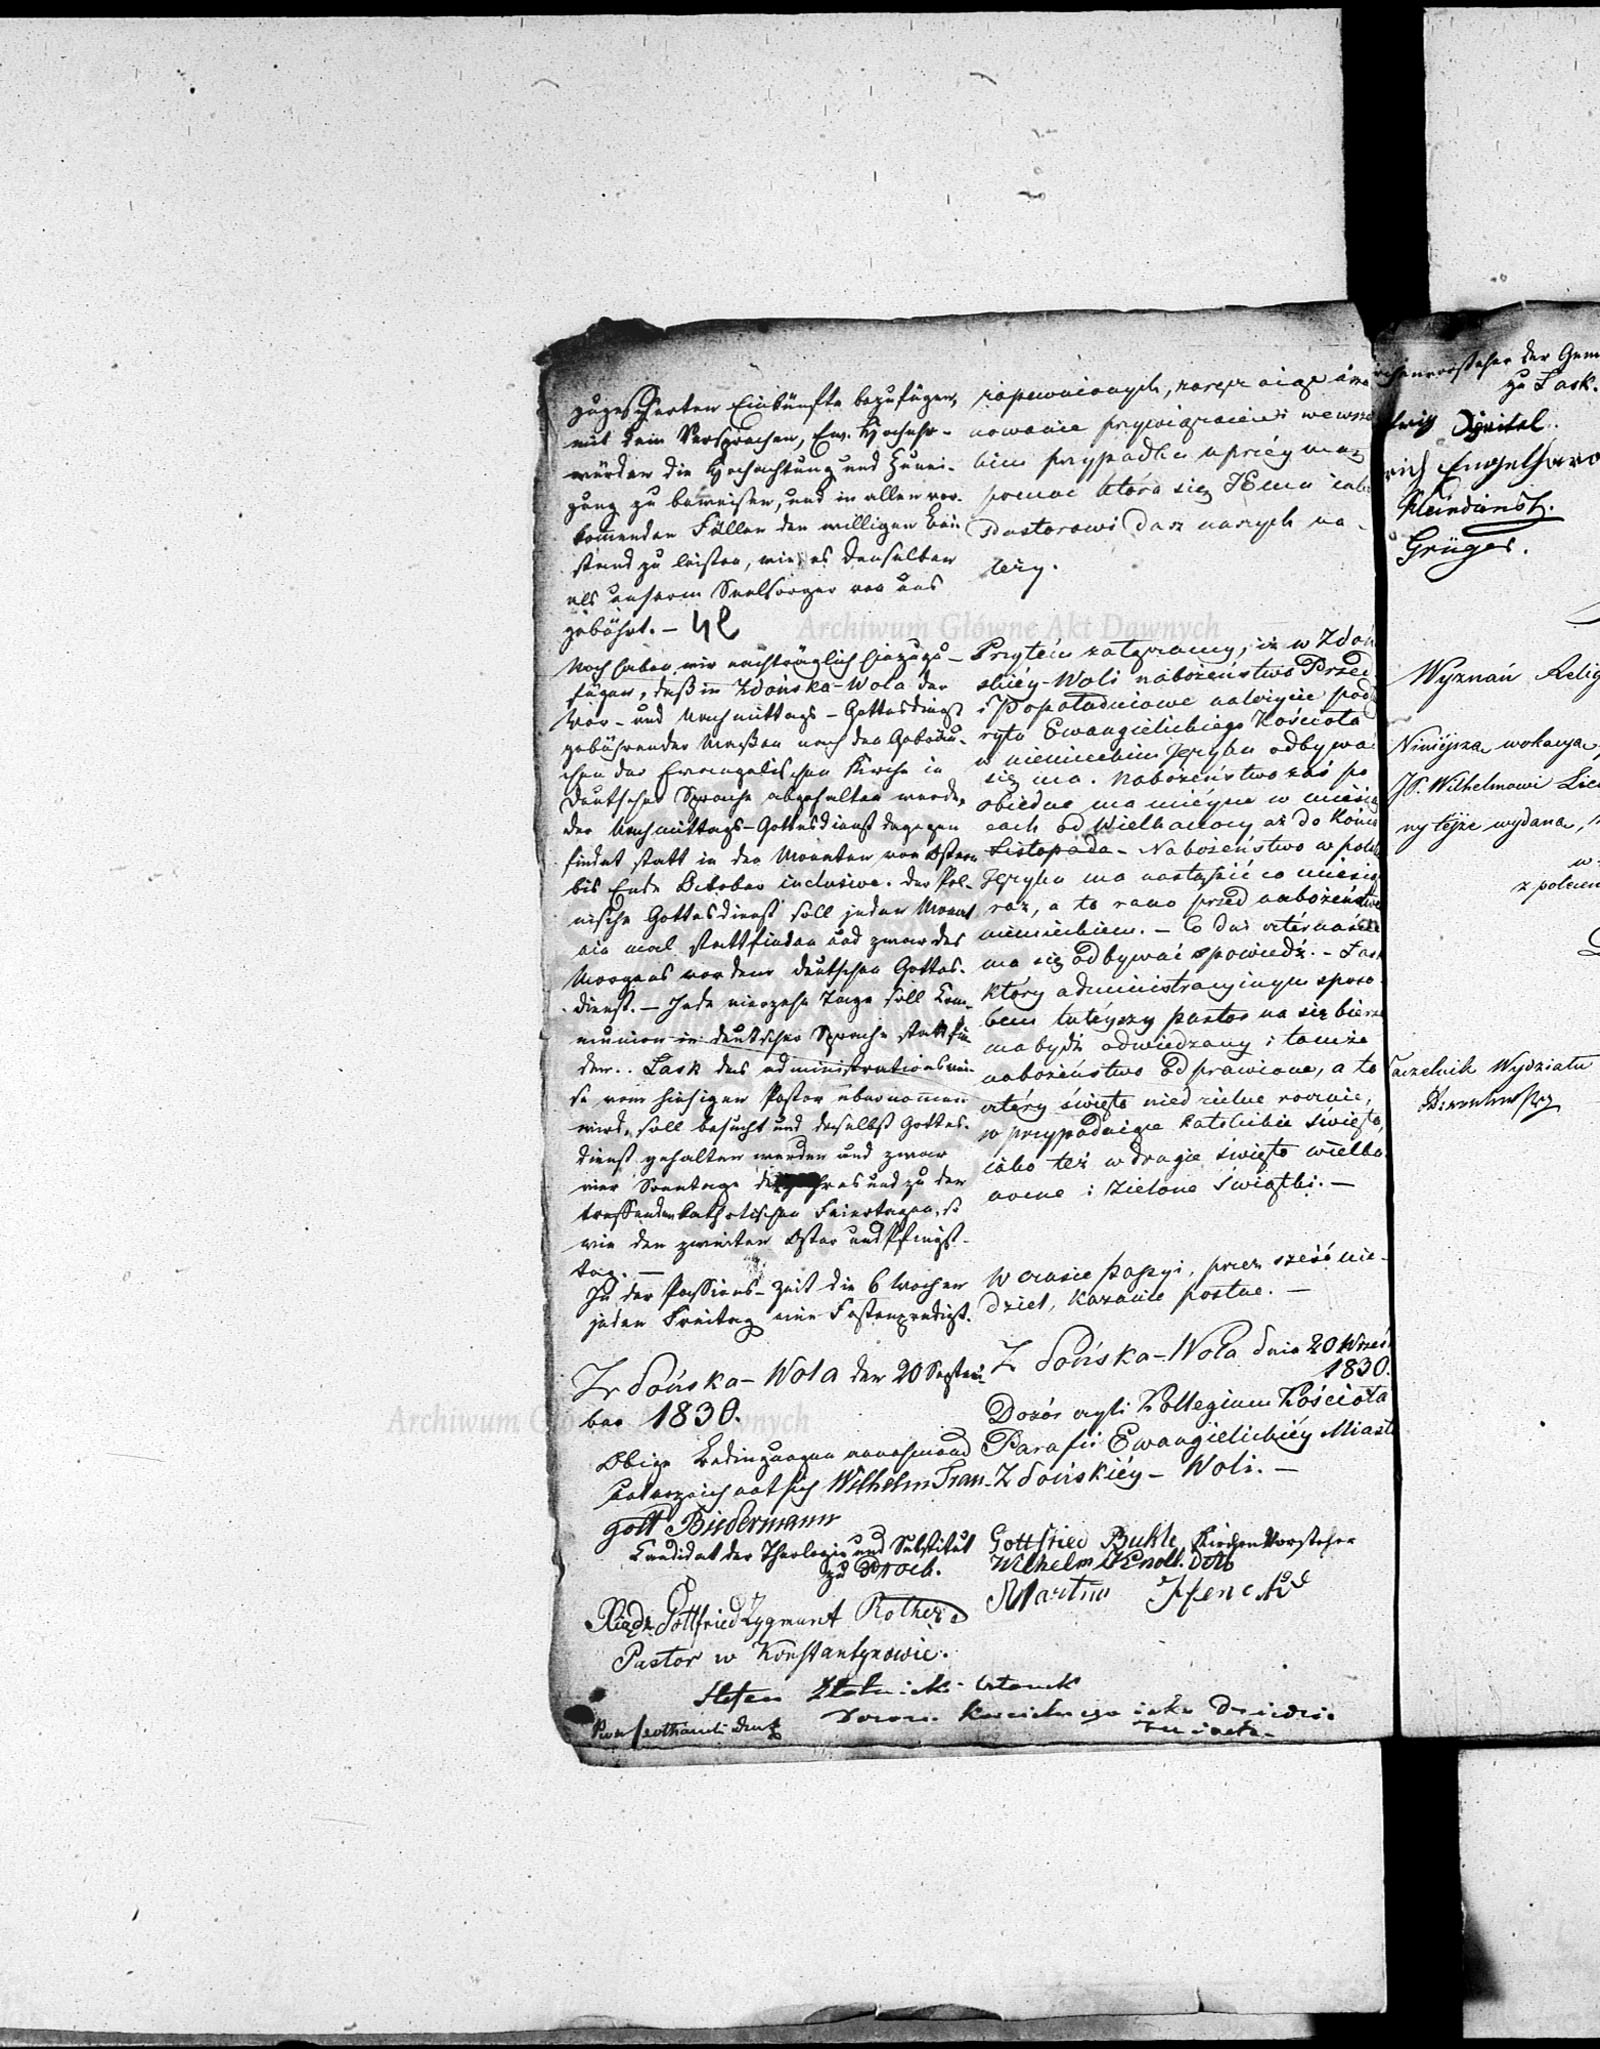 zugesicherten Einkünfte beizufügen,
mit dem Versprechen, Ew. Hochehr-
würden die Hochachtung und Zunei-
gung zu beweisen, und in allen vor-
kommenden Fällen den willigen Bei-
stand zu leisten, wie es denselben
als unserm Seelsorger von uns
gebührt. –
Noch haben wir nachträglich hinzuzu-
fügen, daß in Zdońska-Wola der
Vor- und Nachmittags-Gottesdienst
gebührender Maßen nach den Gebräu-
chen der Evangelischen Kirche in
deutscher Sprache abgehalten werde,
der Nachmittags-Gottesdienst dagegen
findet statt in den Monaten von Ostern
bis Ende October inclusive. der Pol-
nische Gottesdienst soll jeden Monat
ein mal stattfinden und zwar des
Morgens vor dem deutschen Gottes-
dienst. – Jede vierzehn Tage soll Com-
munion in deutscher Sprache stattfin-
den. Lask das administrationswei-
se vom hiesigen Pastor übernommen
wird, soll besucht und daselbst Gottes-
dienst gehalten werden und zwar
vier Sonntage des Jahres und zu den
treffenden katholischen Feiertagen, so
wie den zweiten Oster und Pfingst-
tag. —
In der Passions-Zeit die 6 Wochen
jeden Freitag eine Fastenpredigt.
Zdońska-Wola den 20 Septem-
ber 1830.
Obige Bedingungen annehmend
unterzeichnet sich Wilhelm Trau-
gott Biedermann
Candidat der Theologie und Substitut
zu
Xiądz Gottfried Zygmunt
Pastor w Konstantynowie.
zapewnionych,
nowanie przywiązanie i we wsze
kim przypadku uprzéymą
pomoc która się JEmu iako
Pastorowi Dusz naszych na-
leży.
Archiwum Główne Akt Dawnych
Przytém zastrzegamy, iż w Zdoń
skiéy-Woli nabożeństwo Przed
i Popołudniowe należycie podł
rytu Ewangielickiego Kościoła
w niemieckim Języku odbywać
się ma. Nabożeństwo zaś po
obiedne ma miéysce w miesią
cach od Wielkanocy aż do Końca
Listopada – Nabożeństwo w polsk
Języku ma nastąpić co miesiąc
raz, a to rano przed nabożeństwe
niemieckiem. – Co dni czternaście
ma się odbywać spowiedź. – Łask
który administracyinym sposo-
bem tutéyszy Pastor na się bierze
ma bydź odwiedzany i tamże
nabożeństwo odprawione, a to
cztéry święta niedzielne rocznie,
w przypadaiące katolickie święta,
iako też w drugie święto wielka
nocne i zielone świątki. —
W czasie Passyi, przez sześć nie-
dziel, kazanie postne. —
Zdońska-Wola dnia 20 Wrześ
1830.
Dozór czyli Kollegium Kościoła
Parafii Ewangielickiéy Miasta
Zdońskiéy-Woli. —
Gottfried Buhle, Kirchenvorsteher
Wilhelm
Martin
Archiwum Główne Akt Dawnych
Stefan Złotnicki Członek
Dozoru Kościelnego iako Dziedzic
Miasta
rchenvorsteher der Gem
zu Lask.
Kleindienst.
Grüger.
Wyznań Relig
Ninieysza wokacya
JP. Wilhelmowi
ny téjże wydana,
z polecen
aczelnik Wydziału